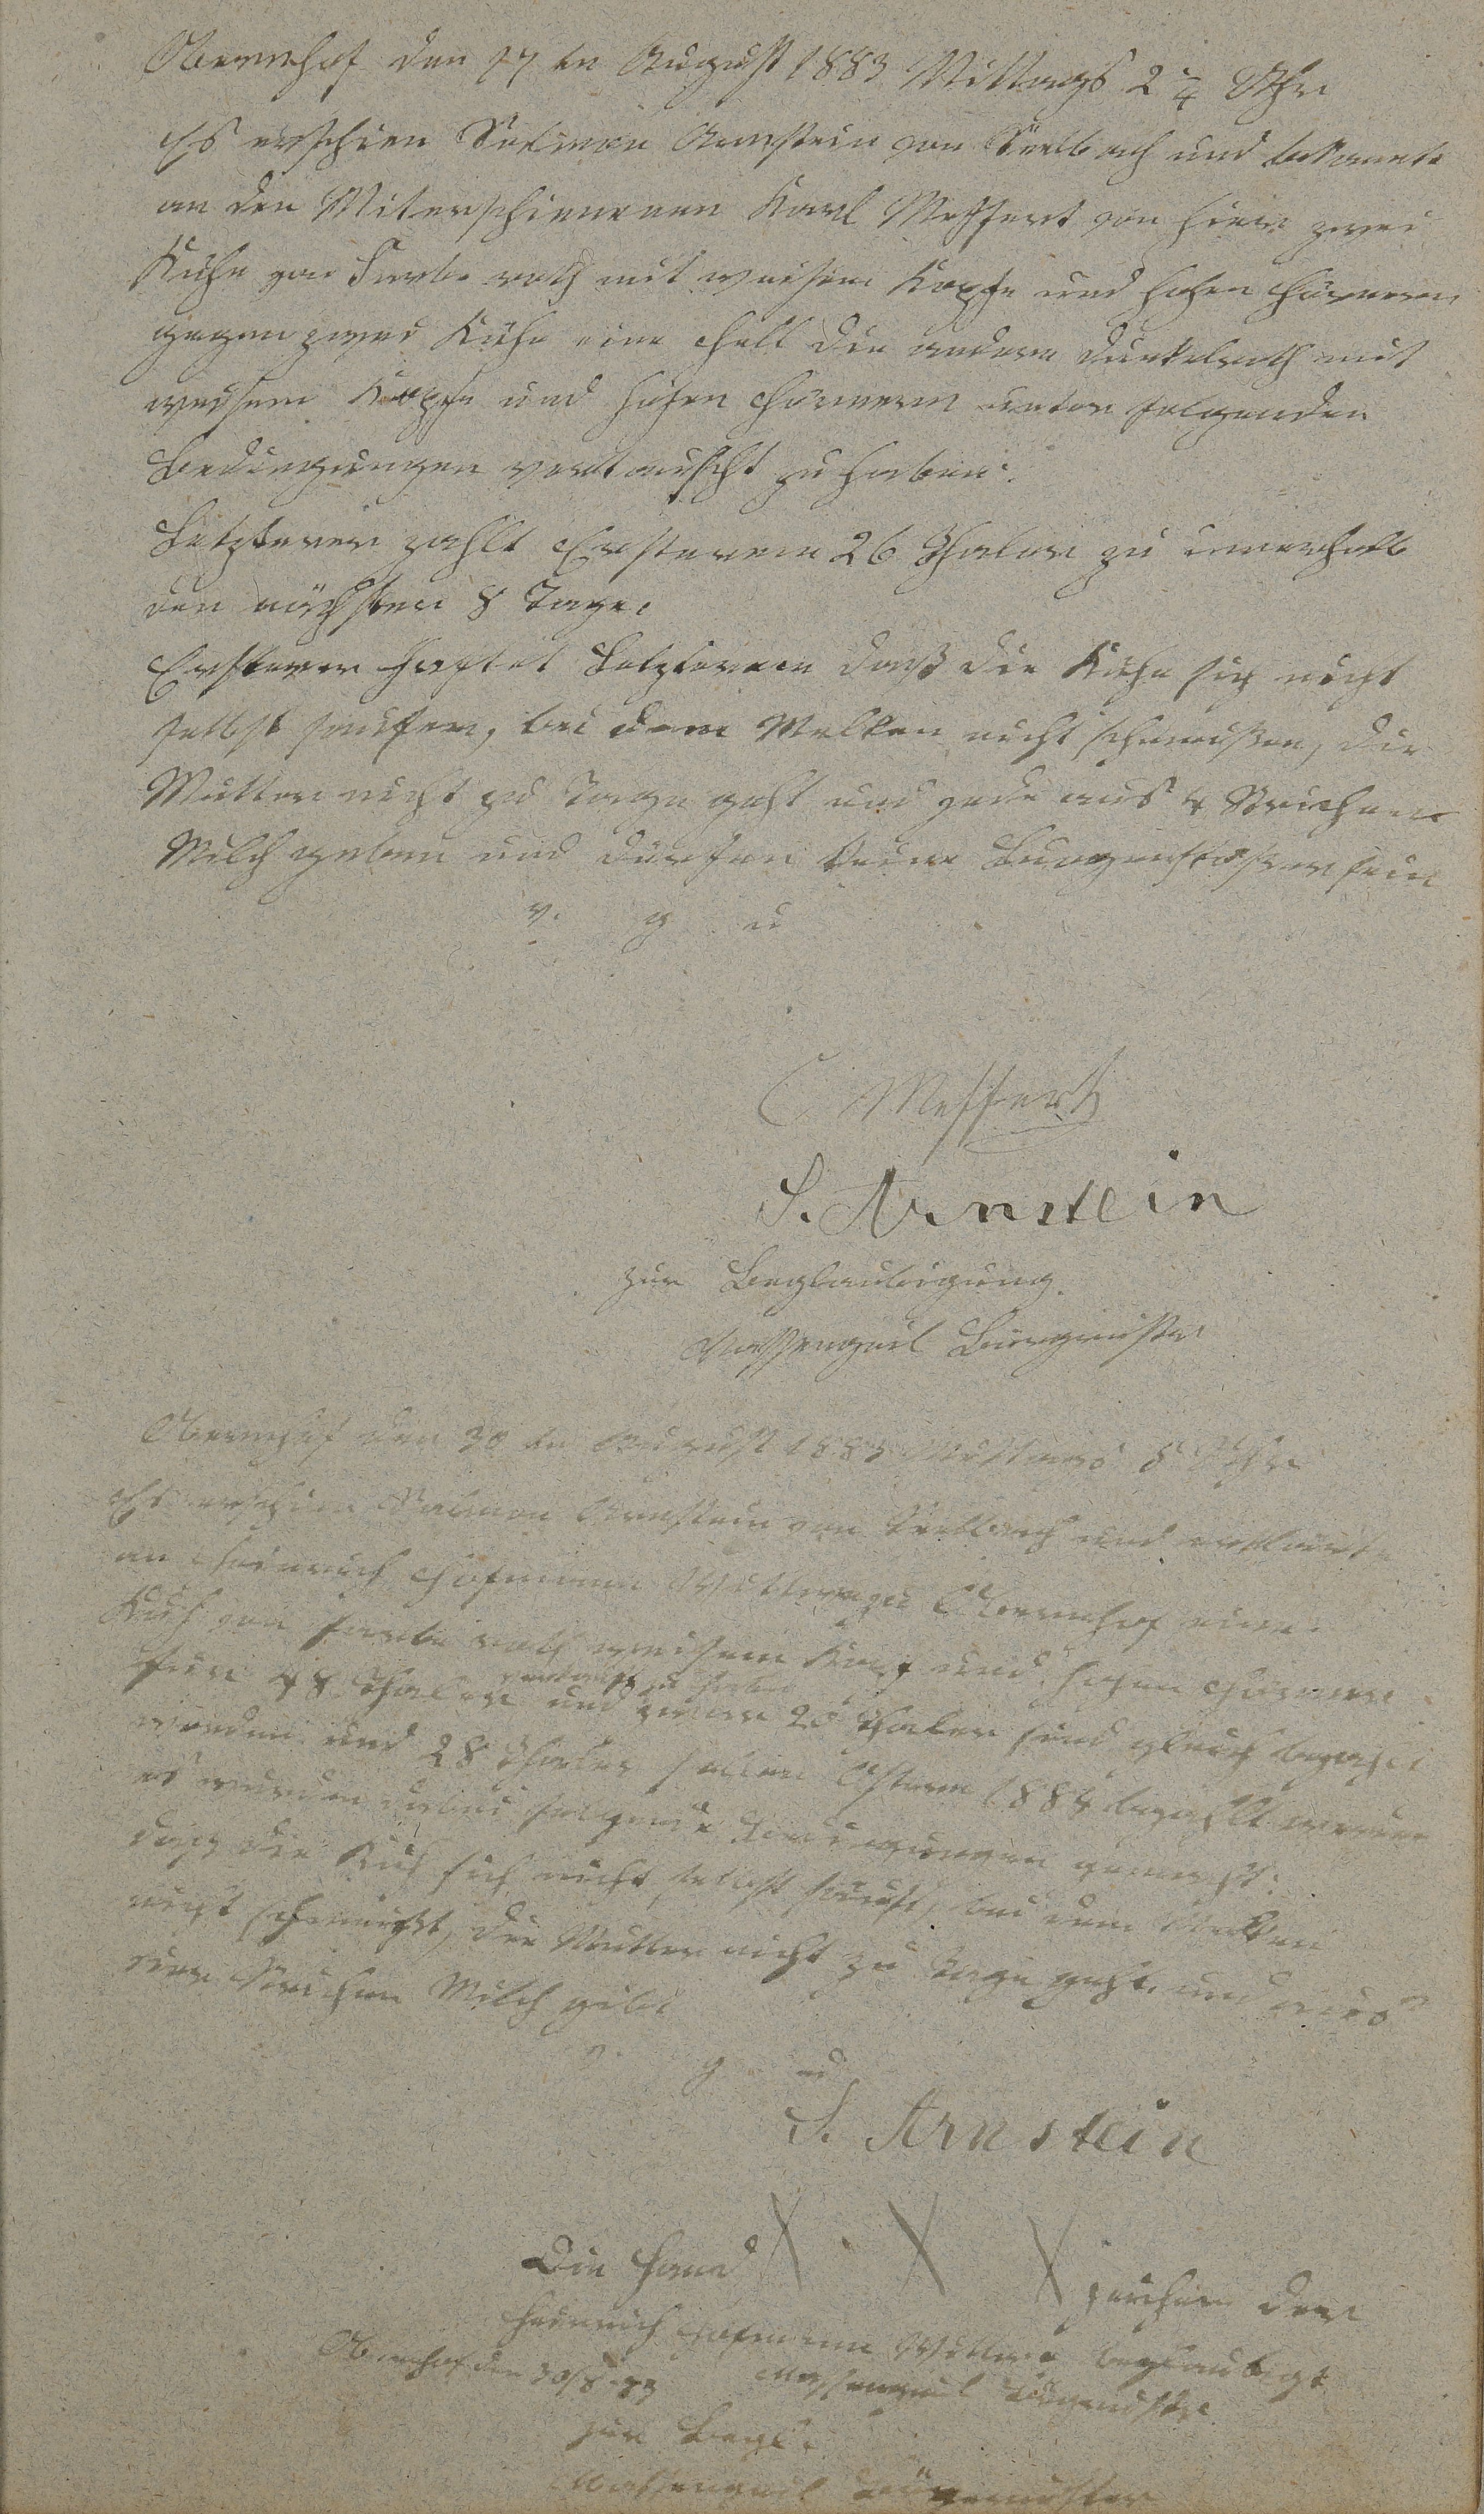 Obernhof den 17 ten August 1883 Mittags 2 1/4 Uhr
Es erschien Salmon Arnstein von Seelbach und bekannte
an den Miterschienenen Karl Meffert von hier zwei
Kühe von Farbe roth mit weisem Kopfe und hohen Hörnern
gegen zwei Kühe eine hell die andere dunkelroth mit
weisem Kopfe und hohen Hörnern unter folgenden
Bedingungen vertauscht zu haben:
Letzterer zahlt Ersterem 26 Thaler zu innerhalb
den nächsten 8 Tage.
Ersterer haftet Letzterem daß die Kühe sich nicht
selbst saufen, bei dem Melken nicht schmeißen, die
Mutter nicht zu Tage geht und jede aus 4 Strichen
Milch geben und dürfen keine sein
v. g u
C Meffert
S. Arnstein
zur Beglaubigung.
Bürgermeister
Obernhof den 30 ten August 1883 Mittags 5 Uhr
Es erschien Salmon Arnstein von Seelbach und erklärte
an Heinrich Hofmann Wittwe zu Obernhof eine
Kuh von Farbe roth weisem Kopf und hohen Hörnern
für 48 Thaler verkauft zu haben und zwar 20 Thaler sind gleich bezahlt
worden und 28 Thaler sollen Ostern 1884 bezahlt werden
es wurden dabei folgende Bedingungen gemacht:
daß die Kuh sich nicht selbst sauft, bei dem Melken
nicht schmeißt, die Mutter nicht zu Tage geht und aus
vier Strichen Milch gibt
v. g u
S. Arnstein
Die Hand X X X zeichen der
Heinrich Hofmann Wittwe beglaubigt
Obernhof den 30/8 83 Bürgermeister
zur Begl.
Bürgermeister